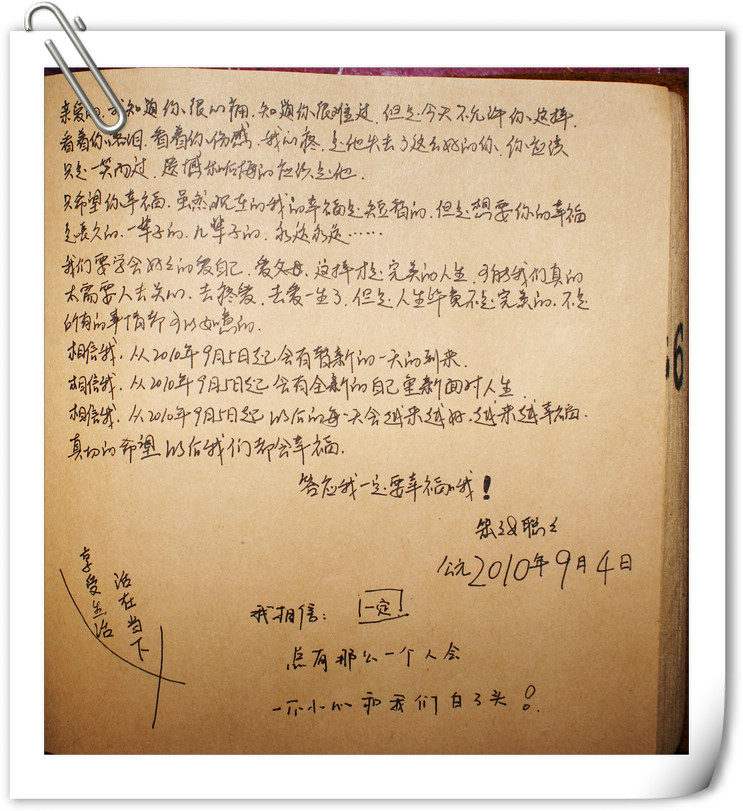 亲爱的,我知道你很心痛,知道你很难过,但是今天不允许你这样,
看着你落泪,看着你伤感,我的疼,是他失去了这么好的你,你应该
只是一笑而过,遗憾和后悔的应该是他.
只希望你幸福,虽然现在的我的幸福是短暂的,但是想要你的幸福
是长久的,一辈子的,几辈子的,永远永远……
我们要学会好好的爱自己,爱父母,这样才是完美的人生,可能我们真的
太需要人去关心,去疼爱,去爱一生了,但是人生毕竟不是完美的,不是
所有的事情都可以如意的.
相信我,从2010年9月5日起会有崭新的一天的到来.
相信我,从2010年9月5日起会有全新的自己重新面对人生.
相信我,从2010年9月5日起以后的每一天会越来越好,越来越幸福.
真切的希望以后我们都会幸福.
答应我一定要幸福哦!
聪
公元2010年9月4日
享受生活
活在当下
我相信: 一定
会有那么一个人会
一不小心和我们白了头!